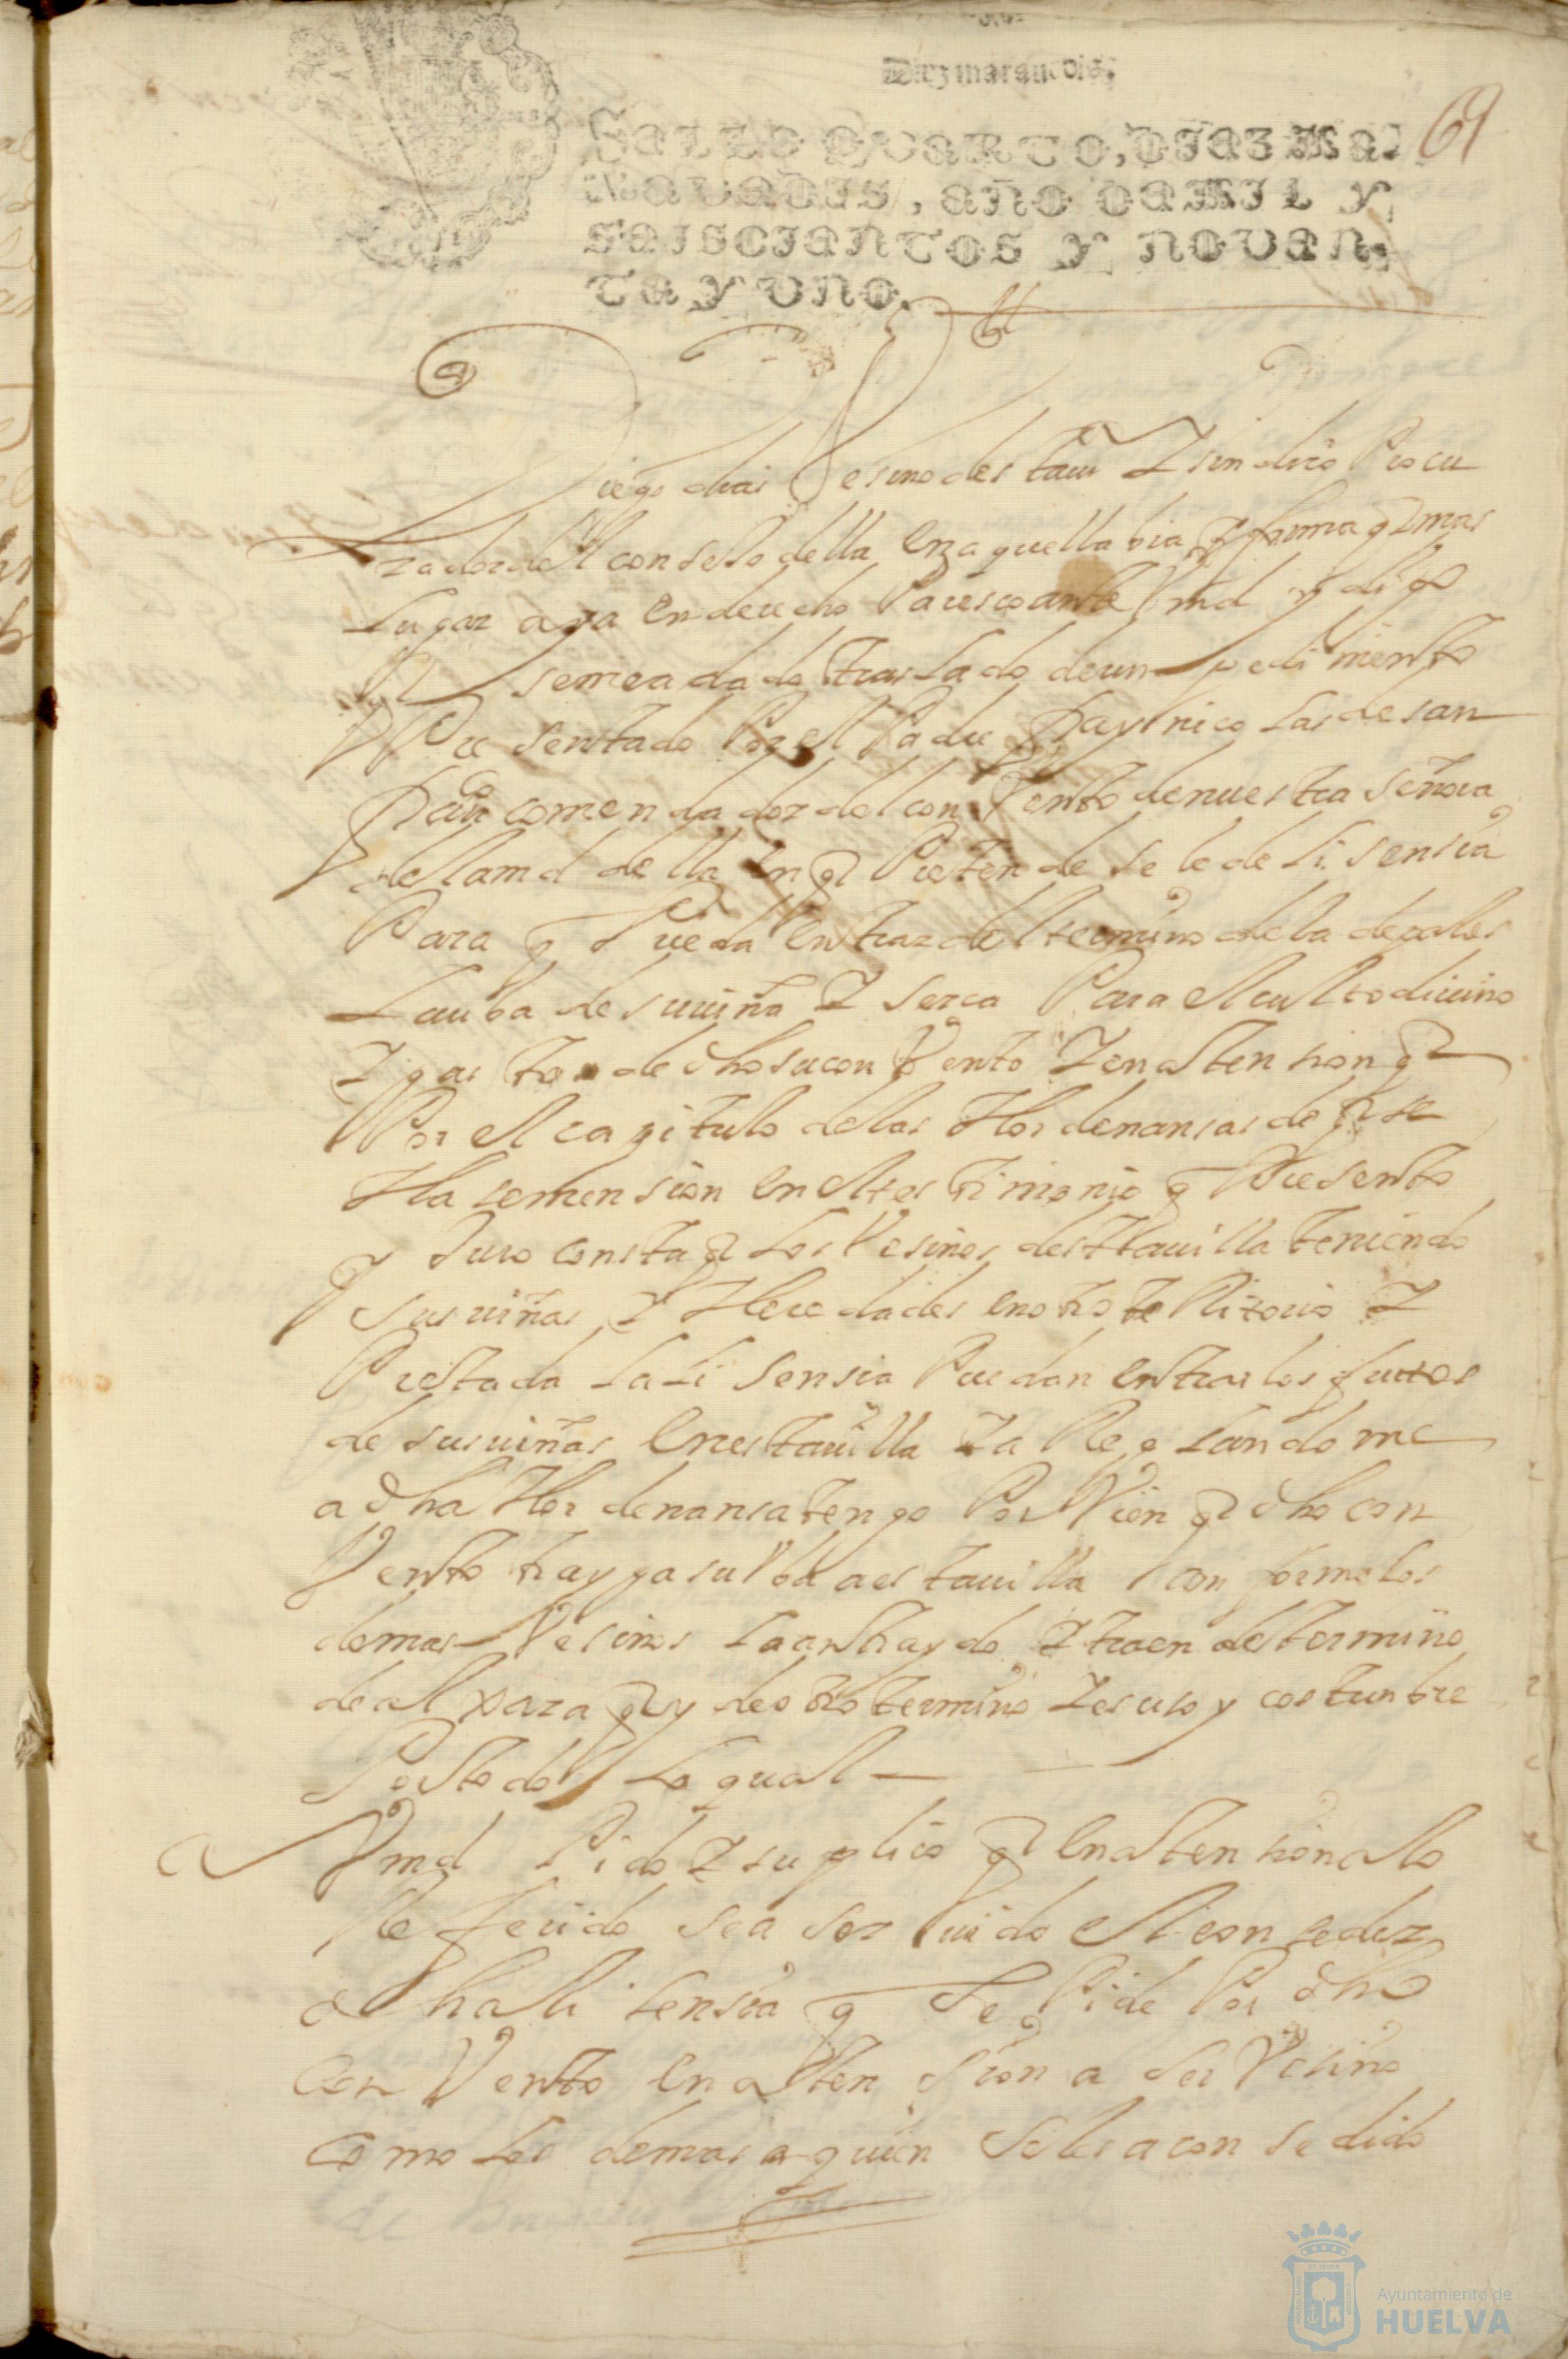 Diez maravedis.
SELLO QVARTO, DIEZ MA-
RAVEDIS, AÑO DE MIL Y
SEISCIENTOS Y NOVEN-
TA Y VNO.
69
Diego dias Vesino desta uª Y sindico Procu
rador del consejo della en aquella bia y forma q mas
Lugar aya en derecho Paresco ante Vmd y digo
q se me a dado traslado de un pedimento
Presentado Por el Padre fray nicolas de san
Juan comendador del conVento de nuestra señora
de la md della en q Pretende se le de lisensia
Para q Pueda entrar del termino de la de
La uba de su uiña Y serca Para el culto diuino
Y gasto de dho su conVento Y en atension q
Por el capitulo de las Hordenansas de q se
Hase mension en el testimonio q Presento
y Juro consta q Los Vesinos desta uilla teniendo
sus uiñas Y Heredades en otro territorio Y
Prestada La Lisensia Puedan entrar los frutos
de sus uiñas en esta uilla Y aReglandome
a dha Hordenansa tengo Por Vien q dho con
Vento trayga su Vba a esta uilla conforme Los
demas Vesinos La an traydo Y traen del termino
de alxaraq y de otro termino Y es uso y costunbre
Por todo Lo qual
A Vmd Pido Y suplico q en atension a lo
Referido sea seruido el consedér
dha lisensia q se Pide Por dho
conVento en atension a ser Vesino
como Los demas a quien se les a consedido
Ayuntamiento de
HUELVA